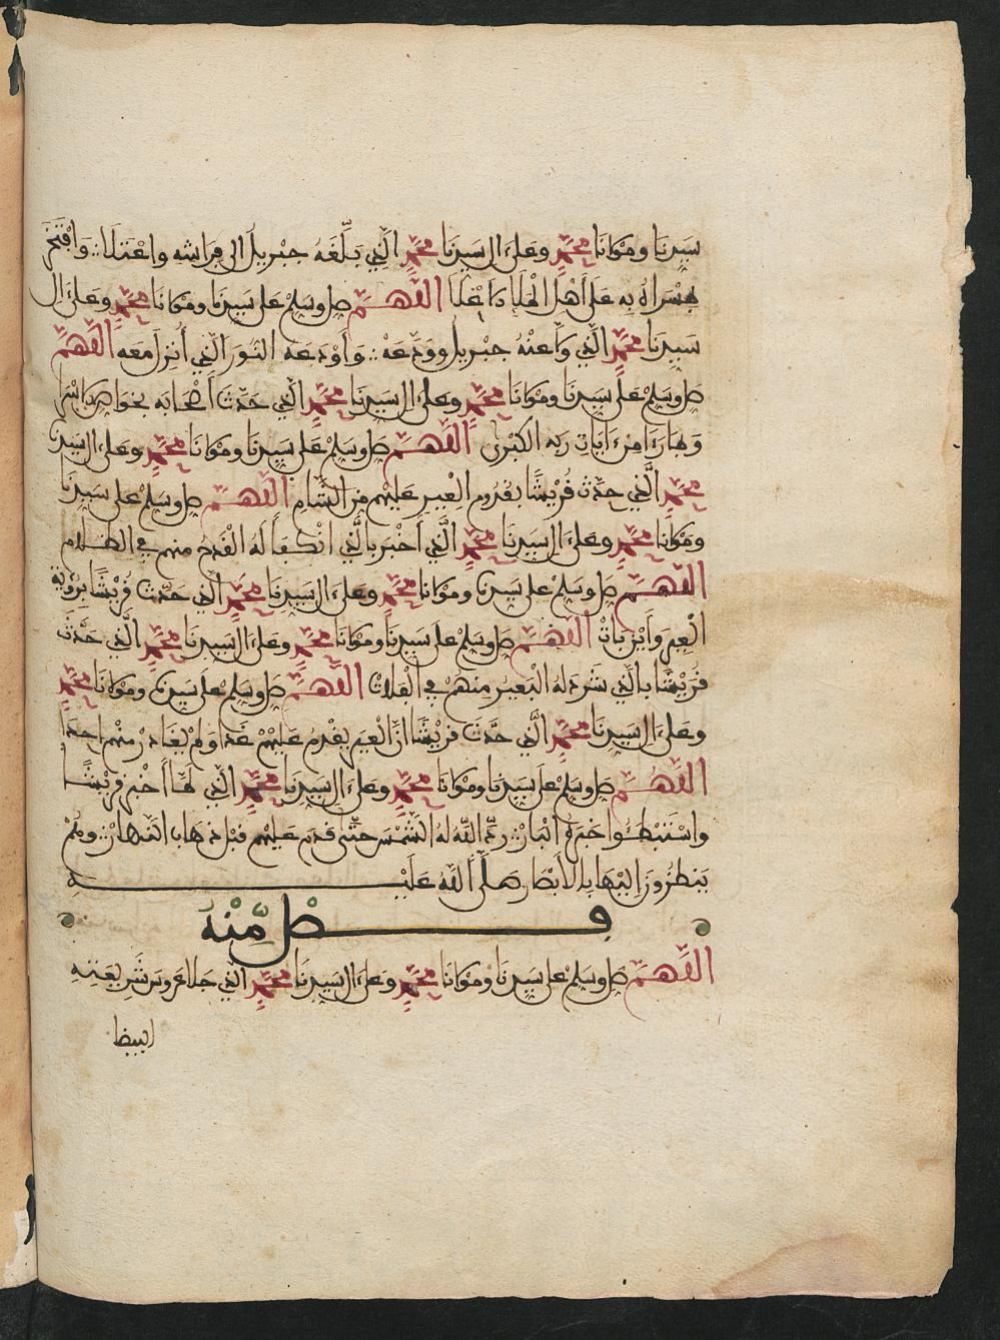 سيدنا ومولانا محمد وعلى ءال سيدنا محمد الذي بلغه جبريل الى فراشه واعتلا ∴ وافتخر
بمسراه به على أهل اللهم صل وسلم على سيدنا ومولانا محمد وعلى ءال
سيدنا محمد الذي جبريل وودعه ∴ وأودعه النور الذي أنزل معه اللهم
صل وسلم على سيدنا ومولانا محمد وعلى ءال سيدنا محمد الذي حدث أصحابه بخواص
ءايات ربه الكبرى اللهم صل وسلم على سيدنا ومولانا محمد وعلى ءال سيدنا
محمد الذي حدث قريشا بقدوم العير عليهم من الشام اللهم صل وسلم على سيدنا
ومولانا محمد وعلى ءال سيدنا محمد الذي أخبر بالذي انكفأ له القدح منهم في الظلام
اللهم صل وسلم على سيدنا ومولانا محمد وعلى ءال سيدنا محمد الذي حدث قريشا برؤية
العير اللهم صل وسلم على سيدنا ومولانا محمد وعلى ءال سيدنا محمد الذي حدث
قريشا بالذي شرد له البعير منهم في الفلات اللهم صل وسلم على سيدنا ومولانا محمد
وعلى ءال سيدنا محمد الذي حدث قريشا ان العير يقدم عليهم غدا ولم يغادر منهم احدا
اللهم صل وسلم على سيدنا ومولانا محمد وعلى ءال سيدنا محمد الذي لما أخبر قريشا
واستبطئوا خبره رد الله له الشمس حتى قدم عليهم قبل ذهاب النهار ∴ وهم
ينظرون اليها بالأبصار صلى الله عليه
فصل منه
اللهم صل وسلم على سيدنا ومولانا محمد وعلى ءال سيدنا محمد الذي جلا عروس شريعته
البيضا